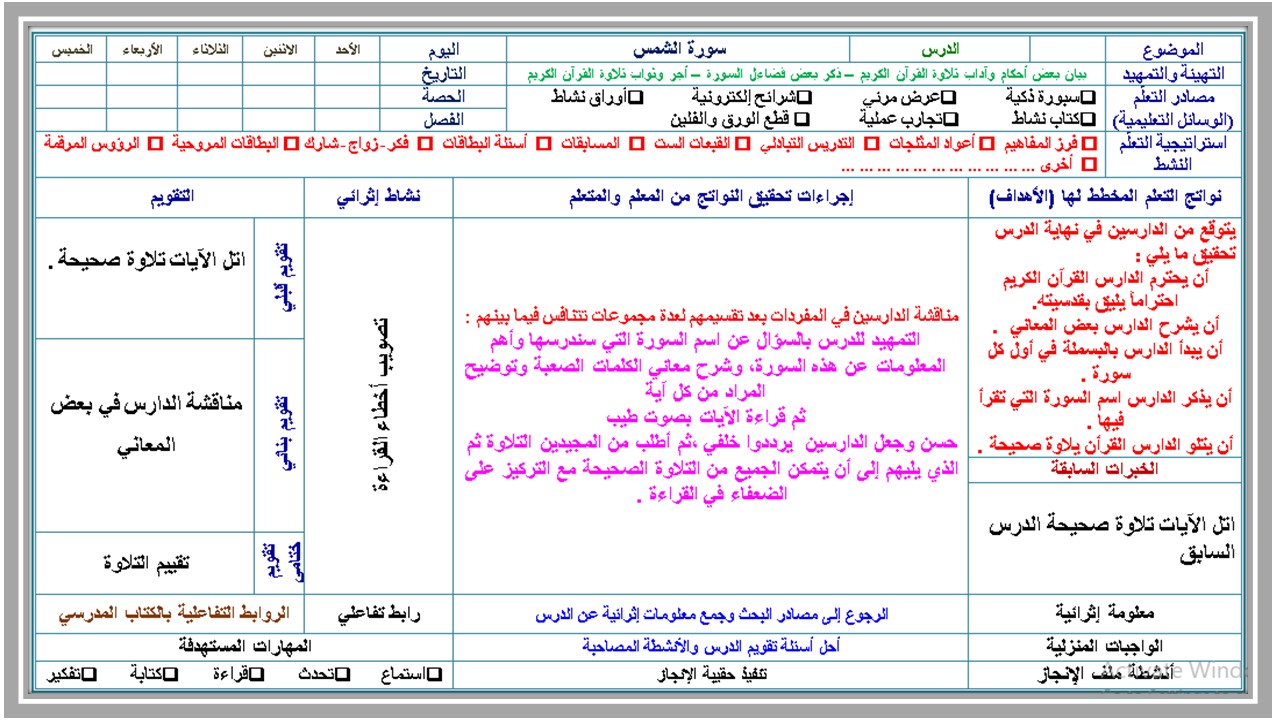 الموضوع
الدرس
سورة الشمس
اليوم
الأحد
الاثنين
الثلاثاء
الأربعاء
الخميس
التهيئة والتمهيد
بيان بعض أحكام وآداب تلاوة القرآن الكريم – ذكر بعض فضائل السورة – أجر وثواب تلاوة القرآن الكريم
التاريخ
مصادر التعلّم
(الوسائل التعليمية)
سبورة ذكية
عرض مرئي
شرائح إلكترونية
أوراق نشاط
كتاب نشاط
تجارب عملية
قطع الورق والفلين
الحصة
الفصل
استراتيجية التعلّم
النشط
فرز المفاهيم
أعواد المثلجات
التدريس التبادلي
القبعات الست
المسابقات
أسئلة البطاقات
فكر-زواج-شارك
البطاقات المروحية
الرؤوس المرقمة
أخرى ... ... ... ... ... ... ... ... ... ...
نواتج التعلم المخطط لها (الأهداف)
إجراءات تحقيق النواتج من المعلم والمتعلم
نشاط إثرائي
التقويم
يتوقع من الدارسين في نهاية الدرس
تحقيق ما يلي :
أن يحترم الدارس القرآن الكريم
احتراماً يليق بقدسيته.
أن يشرح الدارس بعض المعاني .
أن يبدأ الدارس بالبسملة في أول كل
سورة .
أن يذكر الدارس اسم السورة التي تقرأ
فيها .
أن يتلو الدارس القرآن يلاوة صحيحة .
الخبرات السابقة
اتل الآيات تلاوة صحيحة الدرس
السابق
مناقشة الدارسين في المفردات بعد تقسيمهم لعدة مجموعات تتنافس فيما بينهم :
التمهيد للدرس بالسؤال عن اسم السورة التي سندرسها وأهم
المعلومات عن هذه السورة، وشرح معاني الكلمات الصعبة وتوضيح
المراد من كل آية
ثم قراءة الآيات بصوت طيب
حسن وجعل الدارسين يرددوا خلفي ،ثم أطلب من المجيدين التلاوة ثم
الذي يليهم إلى أن يتمكن الجميع من التلاوة الصحيحة مع التركيز على
الضعفاء في القراءة .
تصويب أخطاء القراءة
تقويم قبلي
اتل الآيات تلاوة صحيحة .
تقويم بنائي
مناقشة الدارس في بعض
المعاني
تقويم
ختامي
تقييم التلاوة
معلومة إثرائية
الرجوع إلى مصادر البحث وجمع معلومات إثرائية عن الدرس
رابط تفاعلي
الروابط التفاعلية بالكتاب المدرسي
الواجبات المنزلية
أحل أسئلة تقويم الدرس والأنشطة المصاحبة
المهارات المستهدفة
أنشطة ملف الإنجاز
تنفيذ حقيبة الإنجاز
استماع
تحدث
قراءة
كتابة
تفكير
Activate Wind